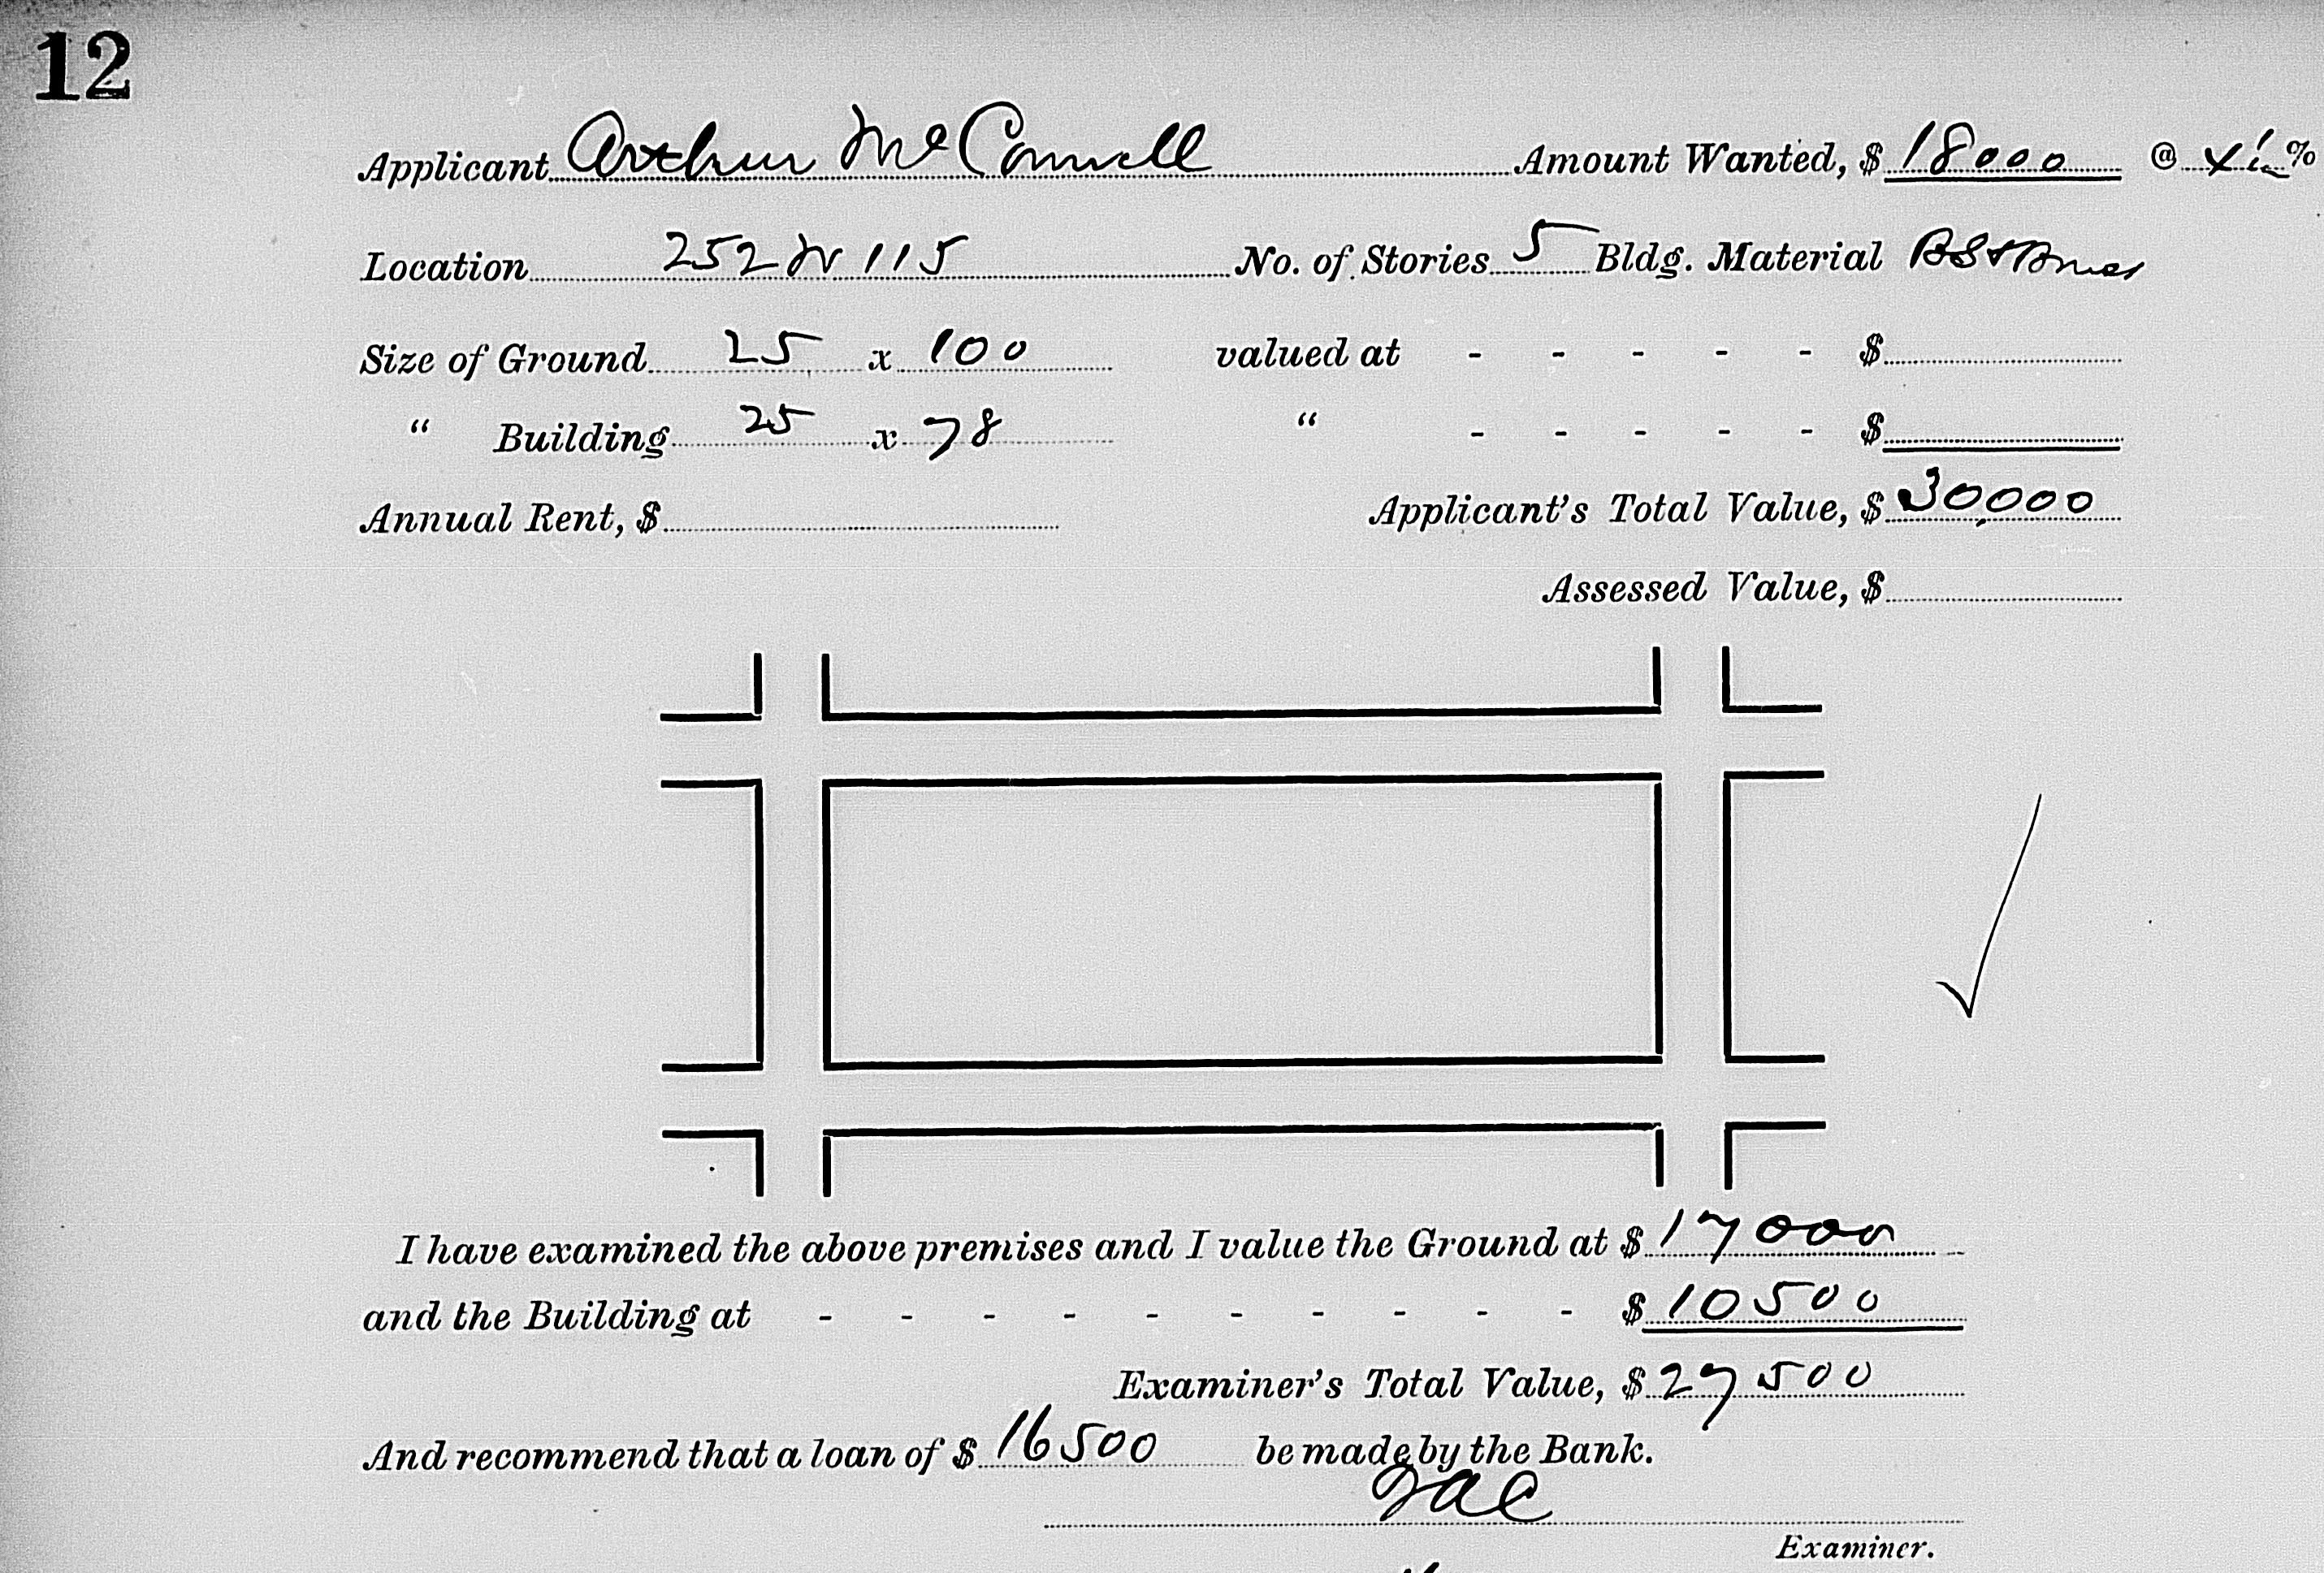 12
Applicant Arthur McConnell Amount Wanted, $ 18000 @ 4½ %
Location 252 W 115 No. of Stories 5 Bldg. Material B S +
Size of Ground 25 x 100 valued at - - - - - $
“ Building 25 x 78 “ - - - - - $
Annual Rent, $ Applicant's Total Value, $ 30,000
Assessed Value, $
I have examined the above premises and I value the Ground at $ 17000
and the Building at - - - - - - - - - - $ 10500
Examiner's Total Value, $ 27500
And recommend that a loan of $ 16500 be made by the Bank.
Examiner.